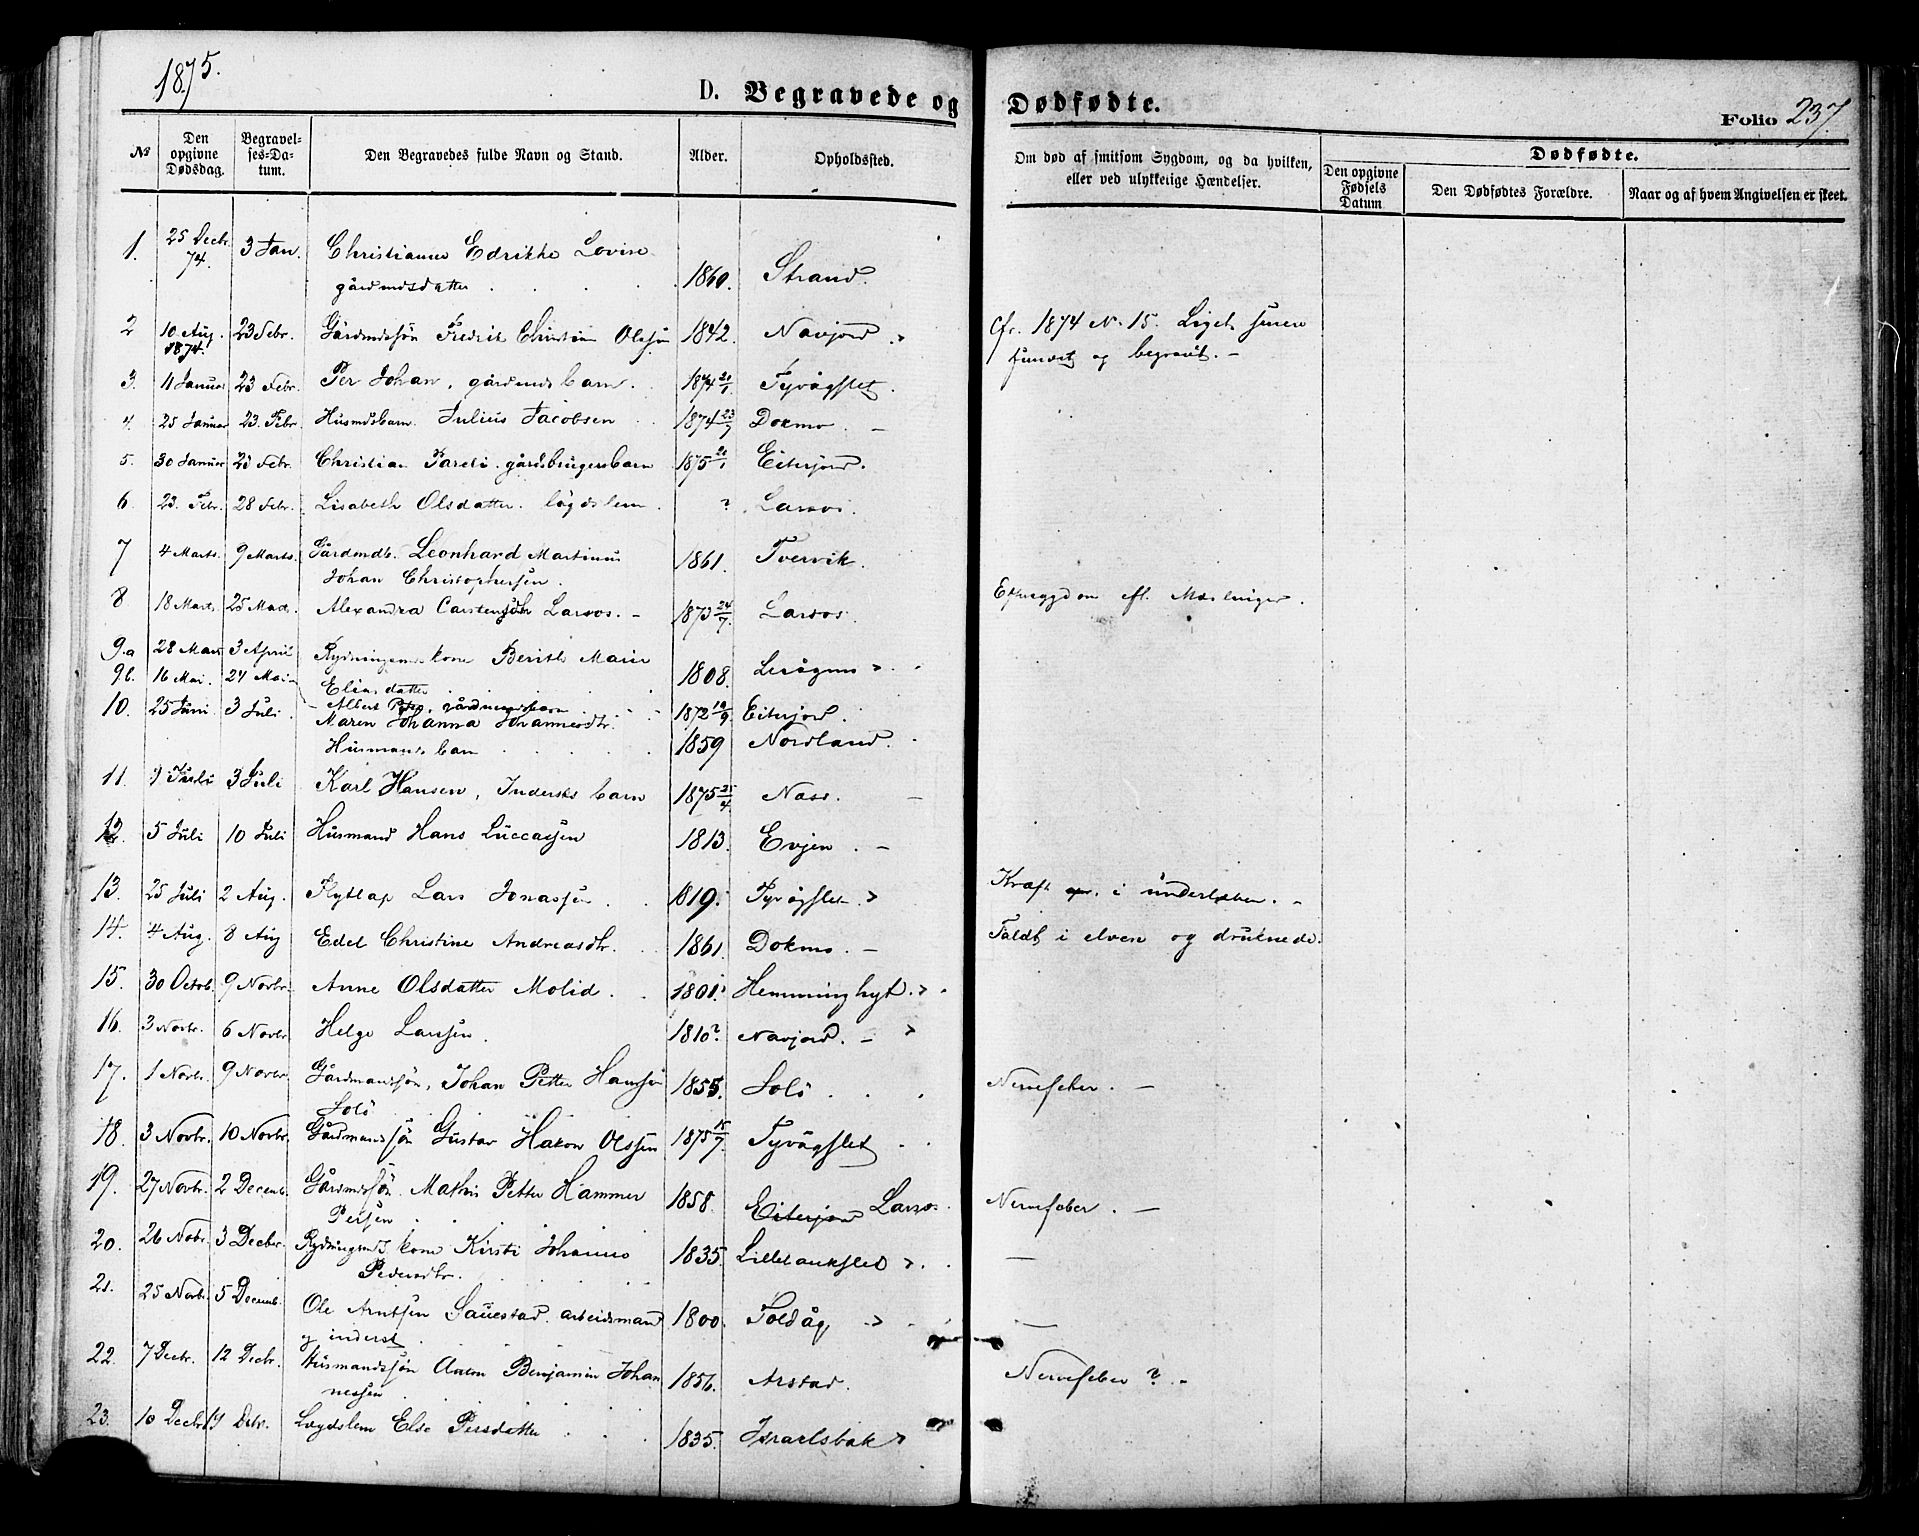 1875.
D. Begravede og Dødfødte.
Folio 237.
№
Den opgivne Dødsdag.
Begravelses-Datum.
Den Begravedes fulde Navn og Stand.
Alder.
Opholdssted.
Om død af smitsom Sygdom, og da hvilken, eller ved ulykkelige Hændelser.
Dødfødte.
Den opgivne Fødsels Datum
Den Dødfødtes Forældre.
Naar og af hvem Angivelsen er skeet.
1. 25 Decbr. 74. 3 Jan. Christianne Edrikke Lovise 1860. Strand.
gårdmdsdatter
2 10 Aug. 1874. 23 Febr. Gårdmdssön Fredrik Christian Olssön 1842. Navjord Cfr. 1874 N. 15. Liget senere
funvet og begravet. –
3. 11 Januar 23 Febr. Per Johan, gårdmds barn. 1874 20/1. Tyvågslet.
4. 25 Januar 23. Febr Husmdsbarn. Julius Jacobsen 1874 23/7 Dokmo. –
5. 30 Januar 23 Febr. Christian Pareli. gårdbrugersbarn 1875 20/1 Eiterjord.
6 23. Febr. 28 Febr. Lisabeth Olsdatter. lägdslem. ? Larsos.
7 4 Marts. 9 Marts. Gårdmdb. Leonhard Martinus 1861. Tvervik.
Johan Christophersen.
8 18 Marts 25 Marts. Alexandra Carstensdtr Larsos. – 1873 24/7. Larsos. Eftersygdom eft. Mæslinger.
9.a 28 Mars 3 April Rydningsmds kone Berith Marie 1808.
Eliasdatter
9b. 16 Mai. 24 Mai – Albert Peter, gårdmandsbarn 1872 19/9. Eiterjord.
10. 25 Juni 3 Juli. Maren Johanna Johannesdtr. 1859 Nordland.
Husmands barn
11. Juli 3 Juli Karl Hansen, Indersts barn 1875 25/4. Næss. –
12. 5 Juli 10 Juli Husmand Hans Luccassen 1813. Evjen. –
13. 25 Juli 2 Aug. Flytlap Lars Jonassen 1819. Tyvågslet. Kræft i underlæben. –
14. 4 Aug. 8 Aug Edel Christine Andreasdtr. 1861. Dokmo. – Faldt i elven og druknede.
15. 30 Octob. 9 Novbr. Anne Olsdatter Molid. 1801. Hemminghyt.
16. 3 Novbr. 6 Novbr Helge Larssen. 1810? Navjord. –
17. 1 Novbr. 9 Novbr. Gårdmandssön, Johan Petter Hanssön 1855. Solö Nervefeber. –
Solö
18. 3 Novbr. 10 Novbr. Gårdmandssön Gustav Hakon Olssen 1875 15/7. Tyvågslet
19. 27 Novbr. 2 Decemb. Gårdmdssön. Mathis Petter Hammer 1858. Eiterjord Larsos. Nervefeber. –
Persen
20. 26 Nobr. 3 Decber. Rydningsmds kone Kirsti Johanna 1835. –
Pedersdtr.
21. 25 Novbr. 5 Decemb. Ole Arntsen Sauestad. arbeidsmand 1800. Toldåg –
og inderst.
22. 7 Decbr. 12 Decbr. Husmandssön Aron Benjamin Johan 1856. Arstad. Nervefeber ? –
nessen
23. 10 Decbr 17 Decbr. Lægdslem Else Persdatter 1835. Israelsbak